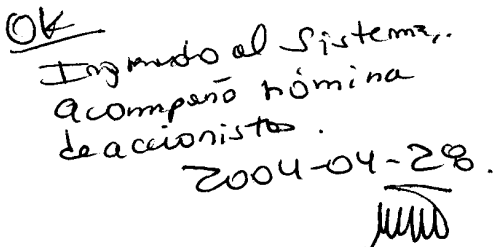 OK
Ingresado al sistema,.
acompaño nómina
de accionistas.
2004-04-28.